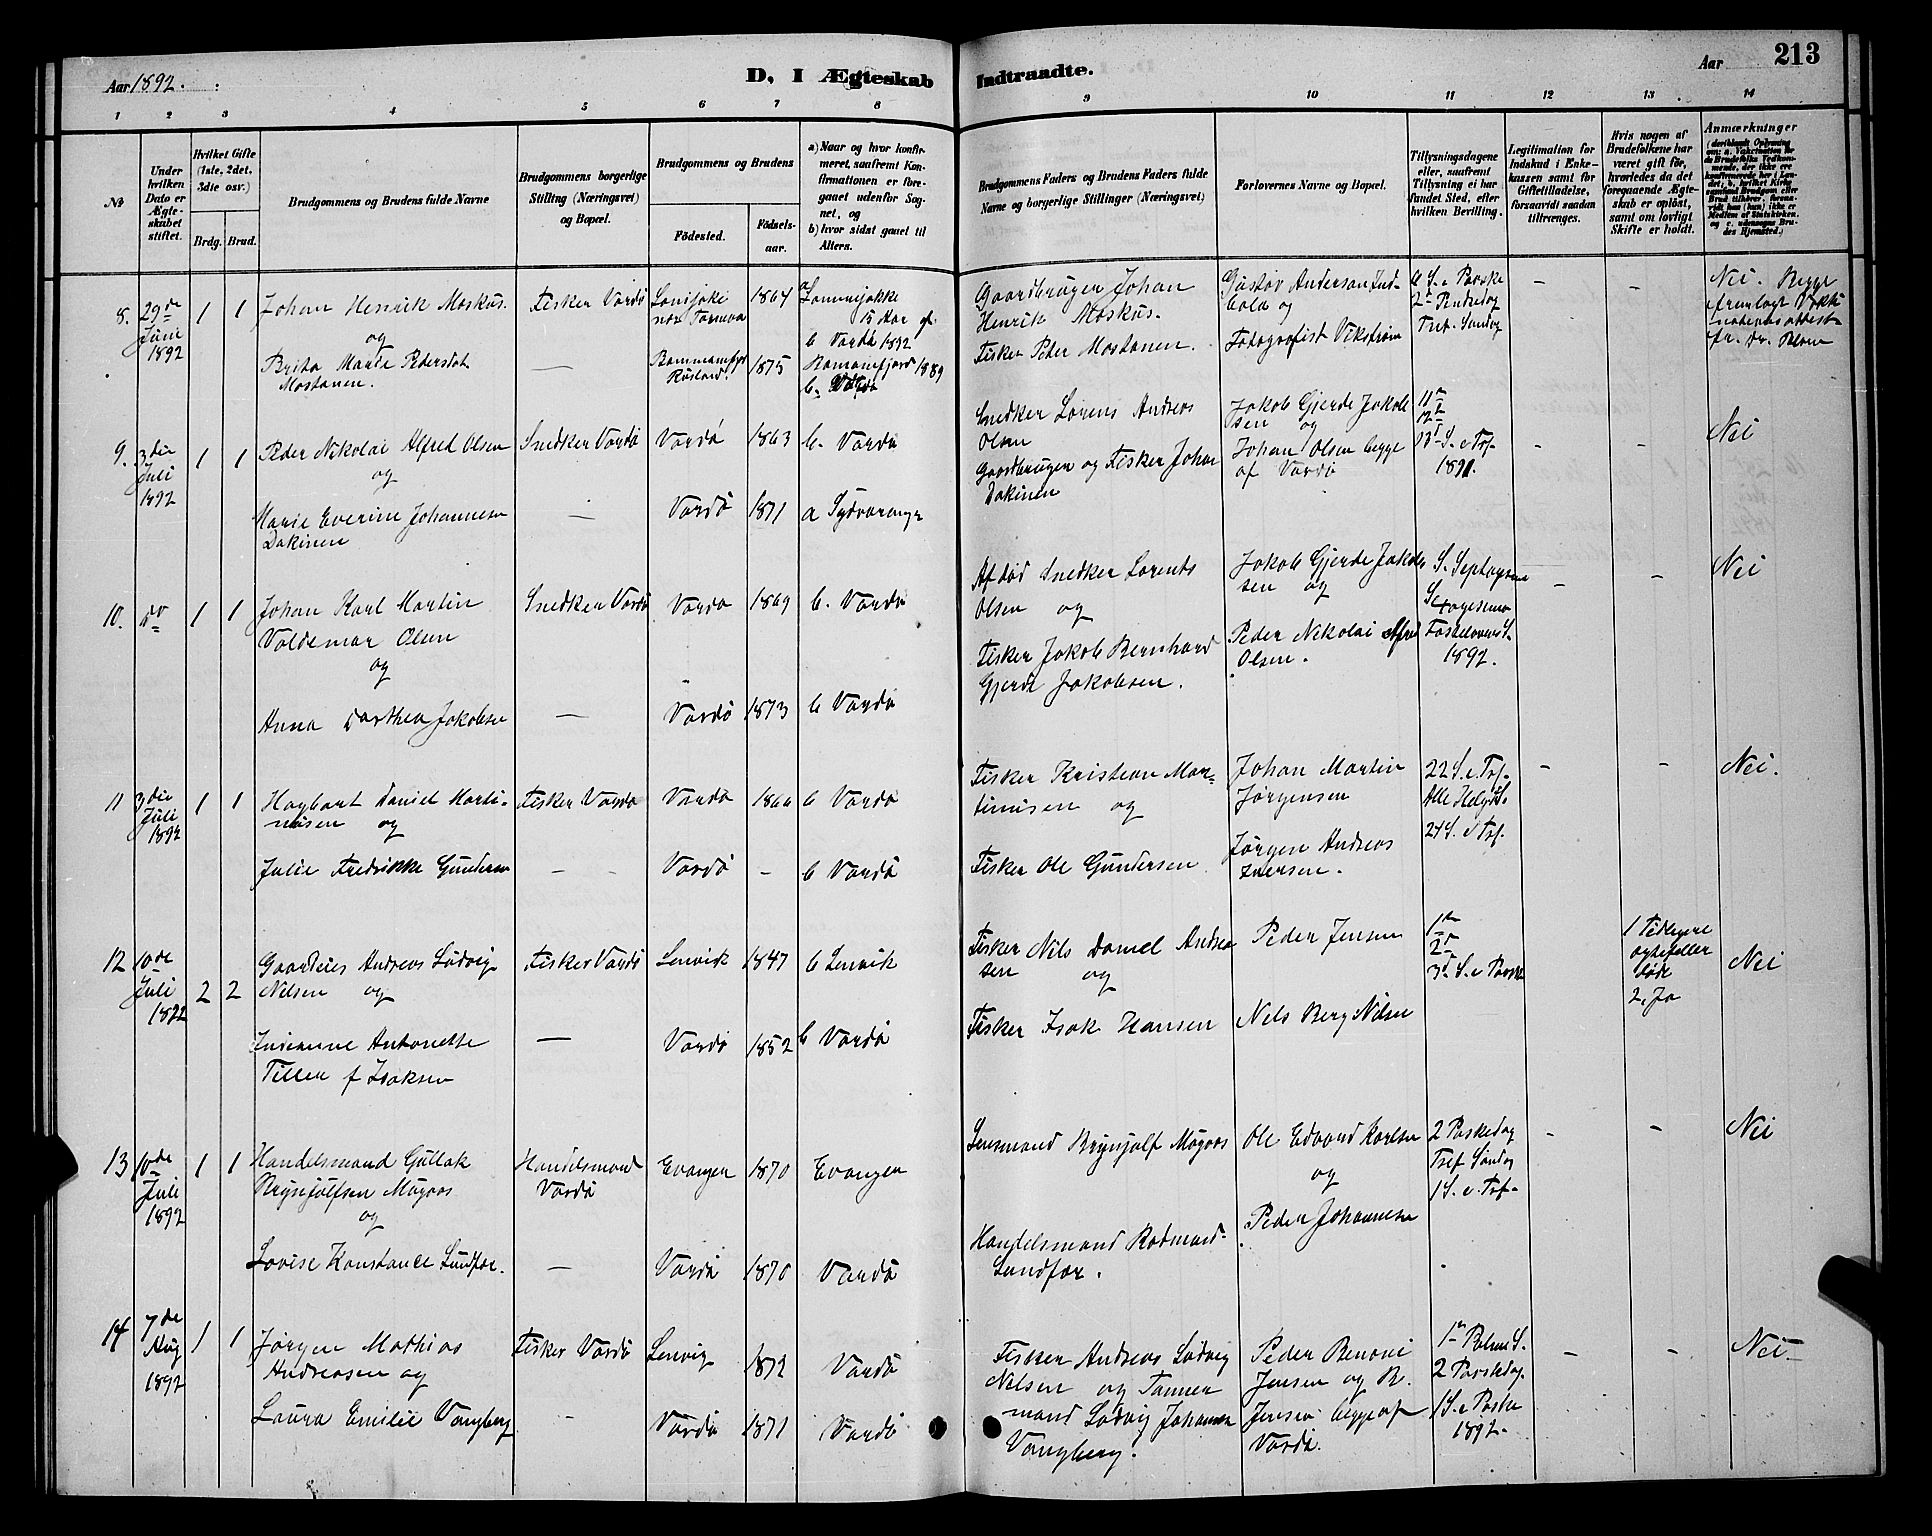 Aar 1892.
D, I Ægteskab
Indtraadte.
Aar
213
1 2 3 4 5 6 7 8 9 10 11 12 13 14
No
Under hvilken Dato er Ægteskabet stiftet.
Hvilket Gifte (1ste, 2det, 3die osv.)
Brdg. Brud.
Brudgommens og Brudens fulde Navne
Brudgommens borgerlige Stilling (Næringsvei) og Bopæl.
Brudgommens og Brudens
Födested.
Födselsaar.
a) Naar og hvor konfirmeret, saafremt Konfirmationen er foregaaet udenfor Sognet, og
b) hvor sidst gaaet til Alters.
Brudgommens Faders og Brudens Faders fulde Navne og borgerlige Stillinger (Næringsvei)
Forlovernes Navne og Bopæl.
Tillysningsdagene eller, saafremt Tillysning ei har fundet Sted, efter hvilken Bevilling.
Legitimation for Indskud i Enkekassen samt for Giftetilladelse, forsaavidt saadan tiltrænges.
Hvis nogen af Brudefolkene har været gift før, hvorledes da det foregaaende Ægteskab er oplöst, samt om lovligt Skifte er holdt.
Anmærkninger
8. 29de Juni 1892
1 1
Johan Henrik Moskus.
og
Brita Marie Pedersdat Mostanen.
Fisker Vardö
1864
1875
b Vardö 1892
1889
b. Vardö
Gaardbruger Johan Henrik Moskus.
Fisker Peter Mostanen.
Gustav Anderson
og
Fotografist Vikström
6 S. e Paaske
2n Pindsedag
Tref. Sondag
Nei. Begge
9. 3die Juli 1892
1 1
Peder Nikolai Alfred Olsen
og
Marie Everine Johannesen Dakinen
Snedker Vardö
Vardö 1863 b. Vardö
Vardö 1871 a Sydvaranger
Snedker Lorens Andreas Olsen
Gaardbruger og Fisker Johan Dakinen
Jakob Gjerde Jakobsen og
Johan Olsen begge af Vardö
11n
12n
13n S. e Trf.
1891.
Nei
10. do
1 1
Johan Karl Martin Valdemar Olsen
og
Anna Dorthea Jakobsen
Snedker Vardö
Vardö 1869 b. Vardö
Vardö 1873 b Vardö
Afdöd Snedker Lorents Olsen og
Fisker Jakob Bernhard Gjerde Jakobsen.
Jakob Gjerde Jakobsen og
Peder Nikolai Alfred Olsen.
S. Septagesima
Sexagesima
Fastelavens S.
1892.
Nei
11 3die Juli 1892
1 1
Hagbart Daniel Martinusen og
Julie Fredrikke Gundersen
Fisker Vardö
Vardö 1866 b Vardö
Vardö - b Vardö
Fisker Kristian Martinusen og
Fisker Ole Gundersen
Johan Martin Jörgensen
Jörgen Andreas Iversen.
22 S. e Trf.
Alle Helgn S.
24 S. e Trf.
Nei.
12 10de Juli 1892
2 2
Gaardeier Andreas Ludvig Nilsen og
Antonette Tillen f Isaksen
Fisker Vardö
Lenvik 1847 b Lenvik
Vardö 1852 b Vardö
Fisker Nils Daniel Andreasen og
Fisker Isak Hansen
Peder Jensen
Nils Berg Nilsen
1n
2n
3n S. e Paaske
1 Tidligere ægtefeller döde
2, Ja
Nei
13 10de Juli 1892
1 1
Handelsmand Gullak Brynjolfsen Mugaas
og
Lovise Konstance Sundfær.
Handelsmand Vardö
Evanger 1870 Evanger
Vardö 1870 Vardö
Lensmand Brynjolf Mugaas
Handelsmand Rodmand Sundfær.
Ole Edvard Karlsen
og
Peder Johannesen
2 Paaskedag
Tref Söndag
1 S. e. Trf.
Nei
14 7de Aug 1892
1 1
Jörgen Mathias Andreasen og
Laura Emilie Vangberg
Fisker Vardö
Lenvig 1872 Vardö
Vardö 1871 Vardö
Fisker Andreas Ludvig Nilsen og Tömmermand Ludvig Johannes Vangberg.
Peder Benoni Jensen og R. Jensen begge af Vardö.
1n Palme S.
2 Paaskedag.
1 S. e Paaske
1892.
Nei